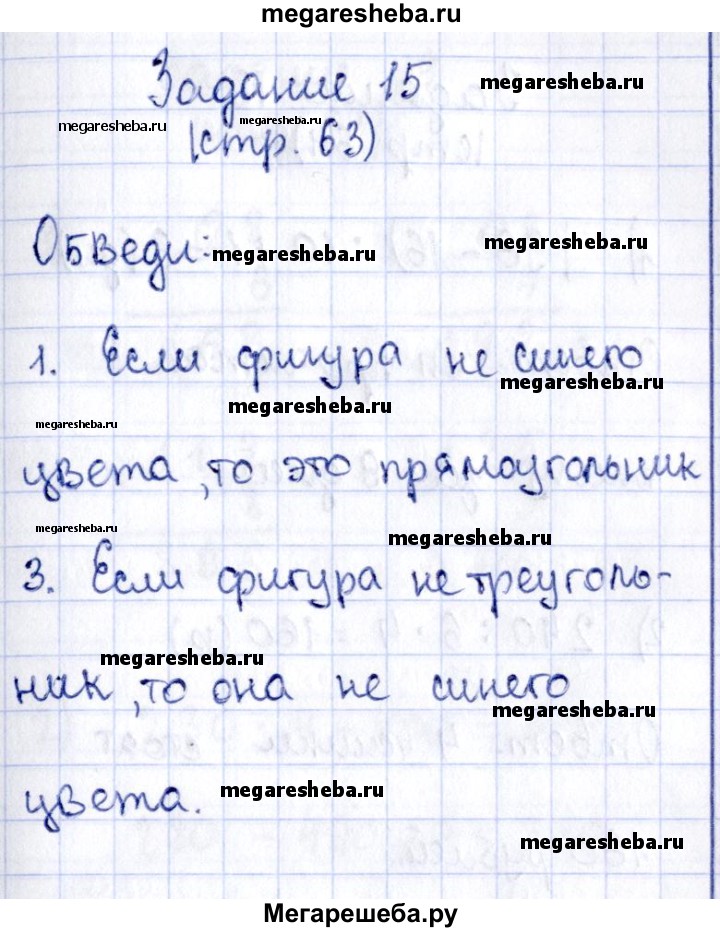 megaresheba.ru
Задание 15
megaresheba.ru
megaresheba.ru
megaresheba.ru
(стр. 63)
Обведи:
megaresheba.ru
megaresheba.ru
1. Если фигура не синего
megaresheba.ru
megaresheba.ru
megaresheba.ru
цвета, то это прямоугольник
megaresheba.ru
megaresheba.ru
3. Если фигура не треуголь-
megaresheba.ru
ник, то она не синего
megaresheba.ru
цвета.
megaresheba.ru
megaresheba.ru
Мегарешеба.ру